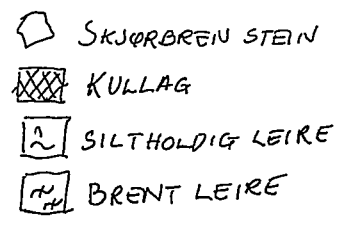 SKJØRBREN STEIN
KULLAG
SILTHOLDIG LEIRE
BRENT LEIRE